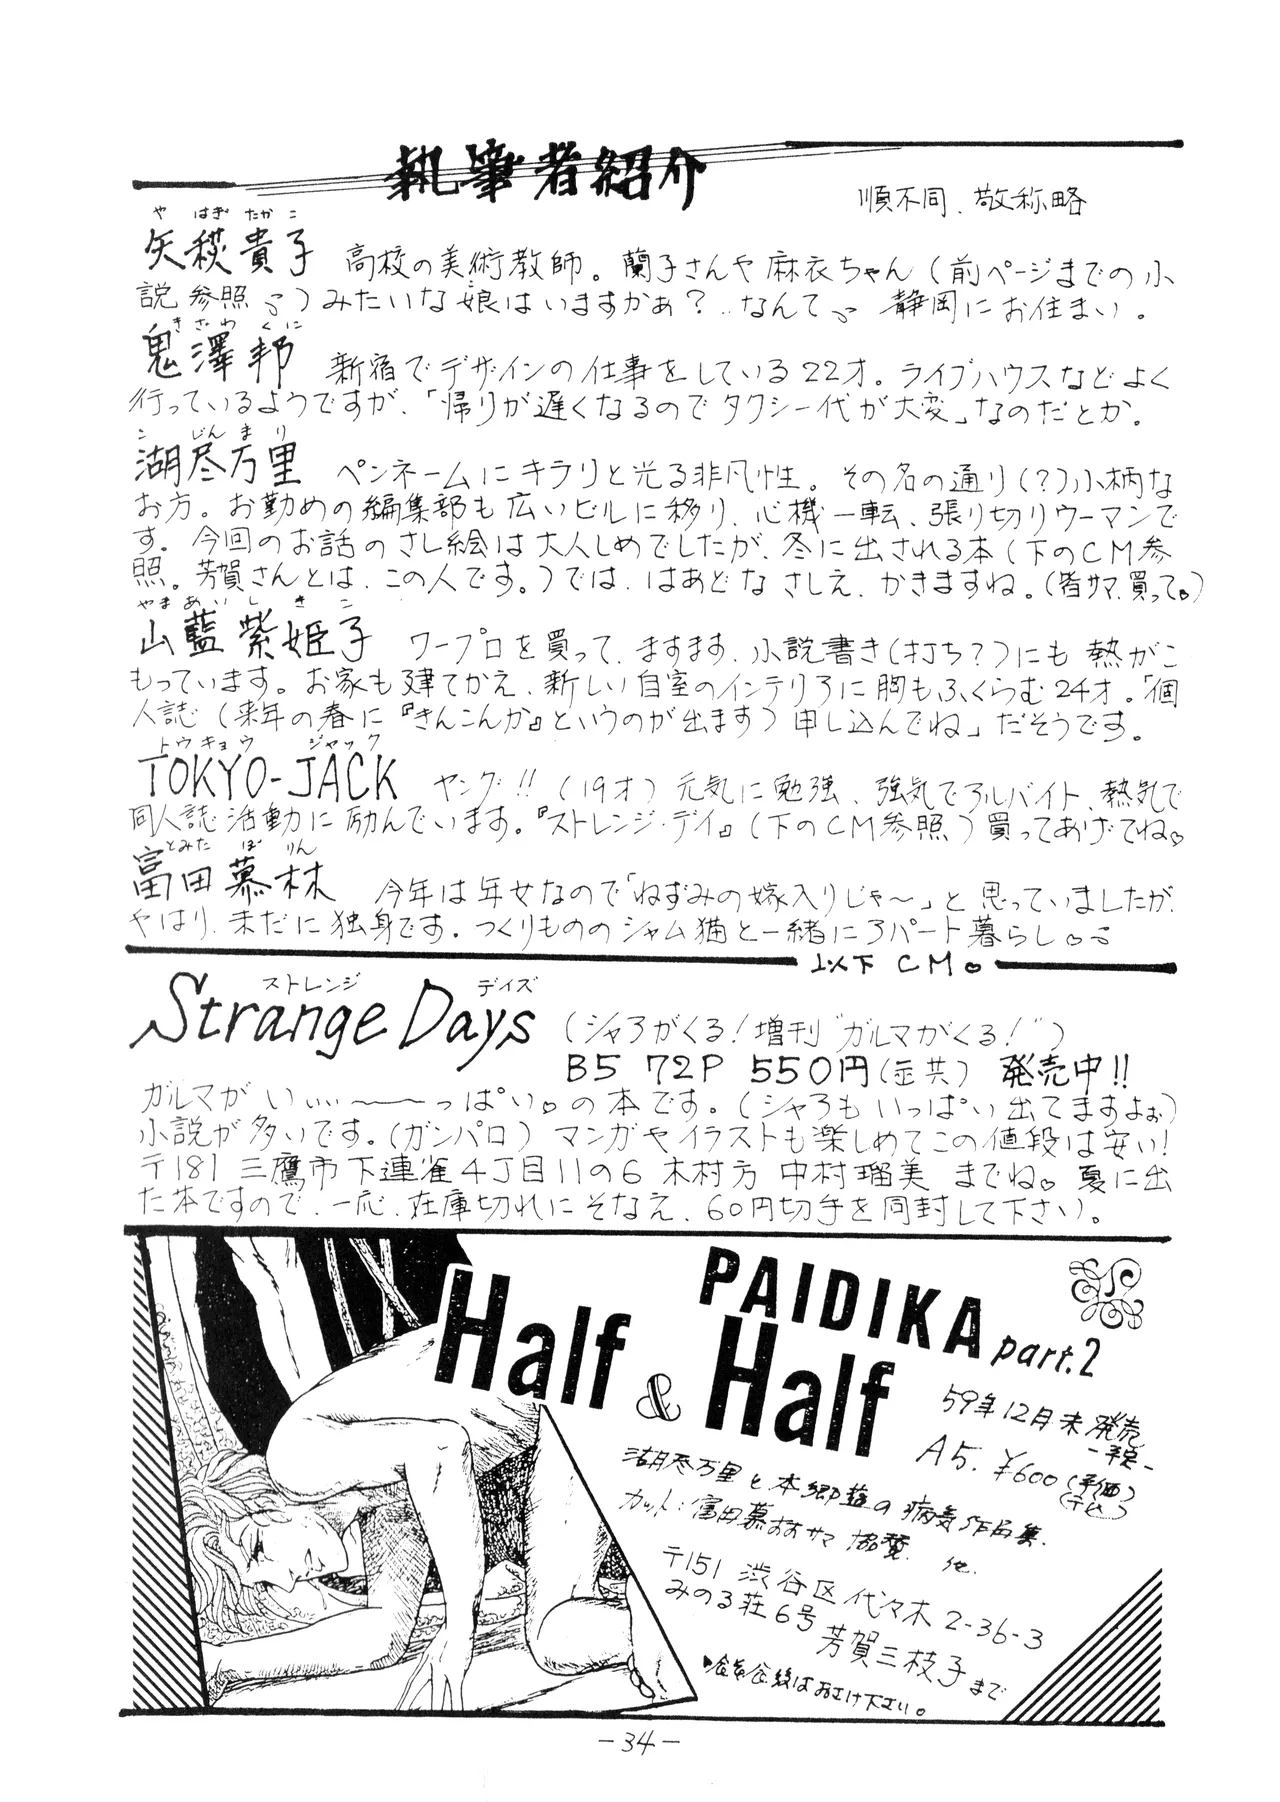 執筆者紹介
順不同、敬称略
や はぎ たか こ
矢萩貴子 高校の美術教師。蘭子さんや麻衣ちゃん(前ページまでの小
説参照)みたいな娘はいますかぁ?‥なんて 静岡にお住まい。
きさわ くに
鬼澤邦 新宿でデザインの仕事をしている22才。ライブハウスなどよく
行っているようですが、「帰りが遅くなるのでタクシー代が大変」なのだとか。
こ じん まり
湖尽万里 ペンネームにキラリと光る非凡性。その名の通り(?)小柄な
お方。お勤めの編集部も広いビルに移り、心機一転、張り切りウーマンで
す。今回のお話のさし絵は大人しめでしたが、冬に出される本(下のCM参
照。芳賀さんとは、この人です。)では、はあどなさしえ、かきますね。(皆サマ、買って。)
やま あい し き こ
山藍紫姫子 ワープロを買って、ますます、小説書き(打ち?)にも熱がこ
もっています。お家も建てかえ、新しい自室のインテリアに胸もふくらむ24才。「個
人誌(来年の春に『きんこんか』というのが出ます)申し込んでね」だそうです。
トウキョウ ジャック
TOKYO-JACK ヤング!!(19才)元気に勉強、強気でアルバイト、熱気で
同人誌活動に励んでいます。『ストレンジ・デイ』(下のCM参照)買ってあげてね
とみた ぼ りん
富田慕林 今年は年女なので「ねずみの嫁入りじゃ〜」と思っていましたが、
やはり、未だに独身です。つくりもののシャム猫と一緒にアパート暮らし
以下CM
ストレンジ デイズ
Strange Days (シャアがくる!増刊“ガルマがくる!”)
B5 72P 550円(〒共) 発売中!!
ガルマがいいぃ〜〜っぱいの本です。(シャアもいっぱい出てますよぉ)
小説が多いです。(ガンパロ)マンガやイラストも楽しめてこの値段は安い!
〒181 三鷹市下連雀4丁目11の6 木村方 中村瑠美 までね 夏に出
た本ですので、一応、在庫切れにそなえ、60円切手を同封して下さい。
PAIDIKA part.2
Half & Half
59年12月末発売
-予定-
A5. ¥600(予価)
(〒込)
湖尽万里と本郷遊の病気作品集.
カット:富田慕林サマ 協賛. 他.
〒151 渋谷区代々木2-36-3
みのる荘6号 芳賀三枝子まで
-34-